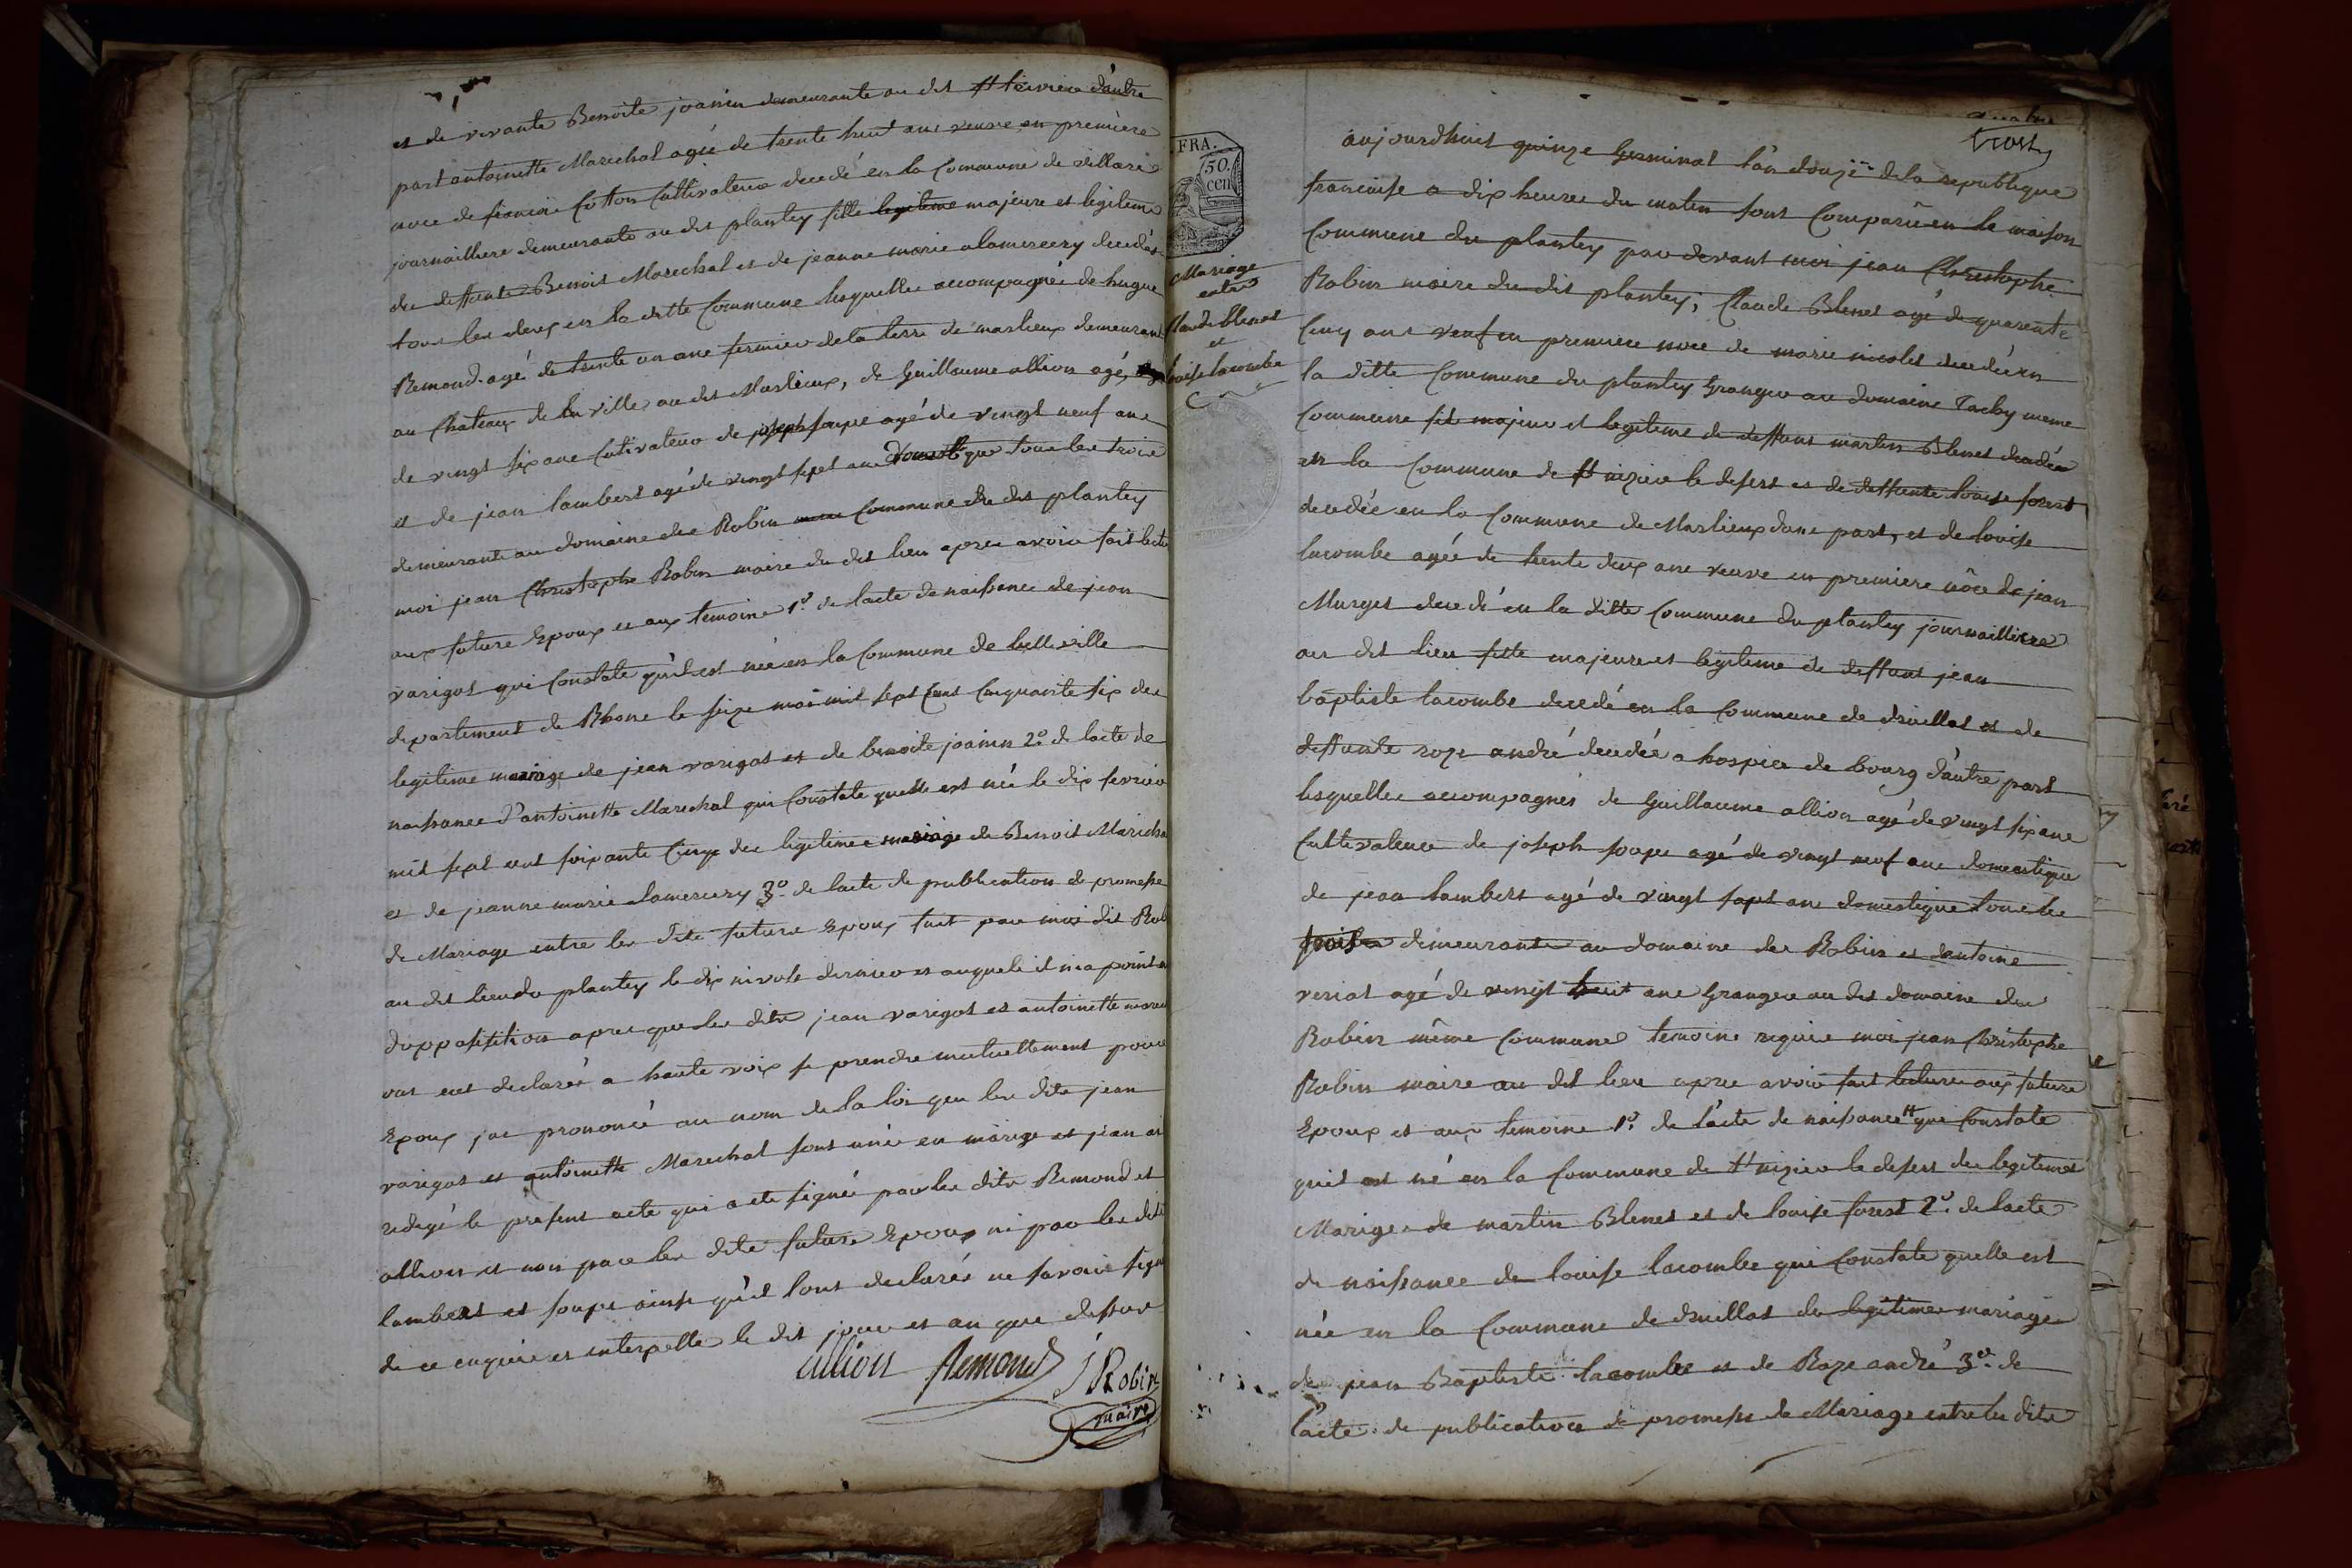 et de vivante Benoite joanin demeurante au dit St trivier d'autre
part antoinette Marechal agée de trente huit ans veuve en premiere
noce de francois Cotton Cultivateur decedé en la Commune de villars
journailliere demeurante au dit plantey fille legitime majeure et legitime
du deffunt Benoit Marechal et de jeanne marie alamercery decedés
tous les deux en la ditte Commune lesquelles accompagnés de hugue
Remond agé de trente un ans fermier de la terre de marlieux demeurant
au Chateaux de la ville au dit Marlieux, de Guillaume allion agé
de vingt six ans Cutivateur de joseph soupe agé de vingt neuf ans
et de jean lambert agé de vingt sept ans domestique tous les trois
demeurants au domaine des Robin Commune du dit plantey
moi jean Christophe Robin maire du dit lieu apres avoir fait lectu
aux future Epoux et aux temoins 1o. de lacte de naissance de jean
varigot qui Constate qu'il est né en la Commune de belleville
departement de Rhone le seize mai mil sept Cent Cinquante six des
legitime mariage de jean varigot et de benoite joanin 2o. de lacte de
naissance d'antoinette Marechal qui Constate quelle est née le dix fevrier
mil sept cent soixante Cinq des legitimes mariage de Benoit Marecha
et de jeanne marie alamercery 3o. de lacte de publication de promesse
de Mariage entre les dits futurs Epoux fait par moi dit Rob
au dit lieu du plantey le dix nivose dernier et auquels il n'i a point eu
d'oppositition apres que les dits jean varigot et antoinette mare
vous eut declarés a haute voix se prendre mutuellement pour
Epoux jai prononcé au nom de la loi que les dits jean
varigot et antoinette Marechal sont unis en marige et jean ai
redigé le present acte qui a ete signée par les dits Remond et
allion et non par les dits futurs Epoux ni par les dits
lambert et soupe ainsi qu'il lont declarés ne savoir signe
de ce enquis et interpellé le dit jour et an que dessus
allion Remond J Robin
maire
FRA.
50.
cen
Mariage
entre
Claude blenet
et
louise lacombe
aujourdhuit quinze Germinal l'an douzie. de la republique
francaise a dix heures du matin sont Comparû en le maison
Commune du plantey par devant moi jean Christophe
Robin maire du dit plantey; Claude Blenet agé de quarente
Cinq ans veuf en premiere noce de marie nicolet decedée en
la ditte Commune du plantey Granger au domaine Tachy meme
Commune fils majeur et legitime de deffunt martin Blenet decedé
en la Commune de St nizier le desert et de deffunte louise forest
decedée en la Commune de Marlieux dune part, et de louise
lacombe agée de trente deux ans veuve en premiere nôce de jean
Murget decedé en la ditte Commune du plantey journailliere
au dit lieu fille majeure et legitime de deffunt jean
baptiste lacombe decedé en la Commune de druillat et de
deffunte roze andré decedée a hospice de bourg d'autre part
lesquelles accompagnés de Guillaume allion agé de vingt six ans
Cultivateur de joseph soupe agé de vingt neuf ans domestique
de jean lambert agé de vingt sept ans domestique tous les
trois demeurants au domaine des Robin et dantoine
veriat agé de vingt huit ans Granger au dit domaine des
Robin même Commune temoins requis moi jean Christophe
Robin maire au dit lieu apres avoir fait lecture aux future
Epoux et aux temoins 1o. de l'acte de naissance que Constate
quil est né en la Commune de St nizier le desert des legitimes
Marige de martin Blenet et de louise forest 2o. de lacte
de naissance de louise lacombe qui Constate quelle est
née en la Commune de druillat du legitimes mariage
de jean Baptiste lacombe et de Roze andré 3o. de
l'acte de publication de promesse de Mariage entre les dits